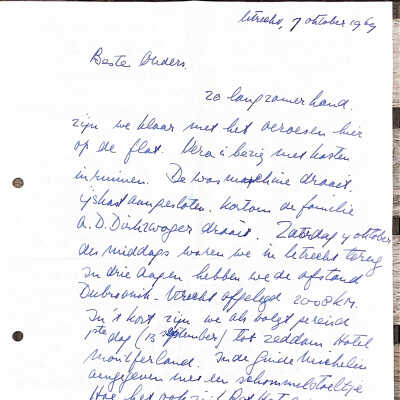 Utrecht, 7 oktober 1969
Beste Ouders.
zo langzamerhand.
zijn we klaar met het hier
op de flat. Vera is bezig met kasten
inruimen. De wasmachine draait.
ijskast aangesloten. kortom de familie
A.D. Dirkzwager draait. Zaterdag 4 oktober
des middags waren we in Utrecht terug
In drie dagen hebben we de afstand
Dubrovnik - Utrecht afgelegd 2008 KM.
In 't kort zijn we als volgt gereisd
1ste dag (13 september) tot Zeddam Hotel
Montferland. In de guide Michelin
aangegeven met een schommelstoeltje